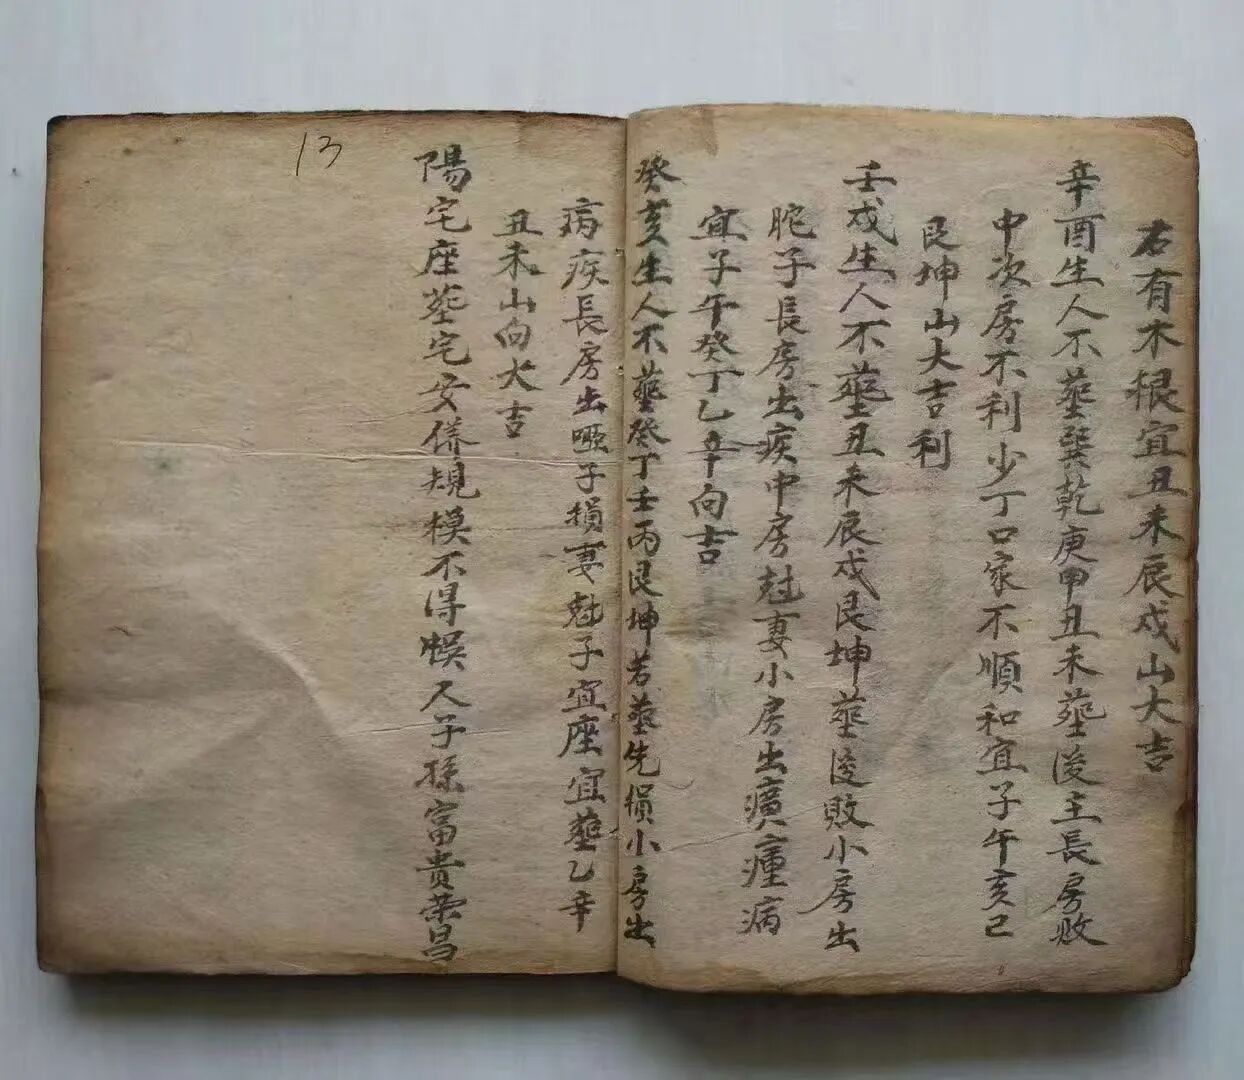 右有木根宜丑未辰戌山大吉
辛酉生人不塟巽乾庚甲丑未塟後主長房敗
中次房不利少丁口家不順和宜子午亥巳
艮坤山大吉利
壬戌生人不塟丑未辰戌艮坤塟後敗小房出
陀子長房出疾中房尅妻小房出癀瘇病
宜子午癸丁乙辛向吉
癸亥生人不塟癸丁壬丙艮坤若塟先損小房出
病疾長房出啞子損妻尅子宜座宜塟乙辛
丑未山向大吉
陽宅座塟宅安俻規模不得悞人子孫富貴荣昌
13